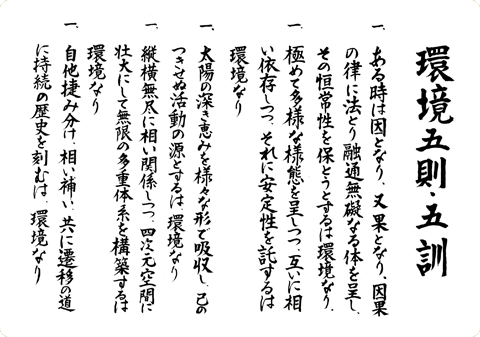 環境五則・五訓
一、ある時は因となり、又果となり、因果
の律に法とり融通無礙なる体を呈し、
その恒常性を保とうとするは環境なり、
一、極めて多様な様態を呈しつつ、互いに相
い依存しつつ、それに安定性を託するは
環境なり
一、太陽の深き恵みを様々な形で吸収し、己の
つきせぬ活動の源とするは環境なり
一、縦横無尽に相い関係しつつ、四次元空間に
壮大にして無限の多重体系を構築するは
環境なり
一、自他捷み分け、相い補い、共に遷移の道
に持続の歴史を刻むは、環境なり